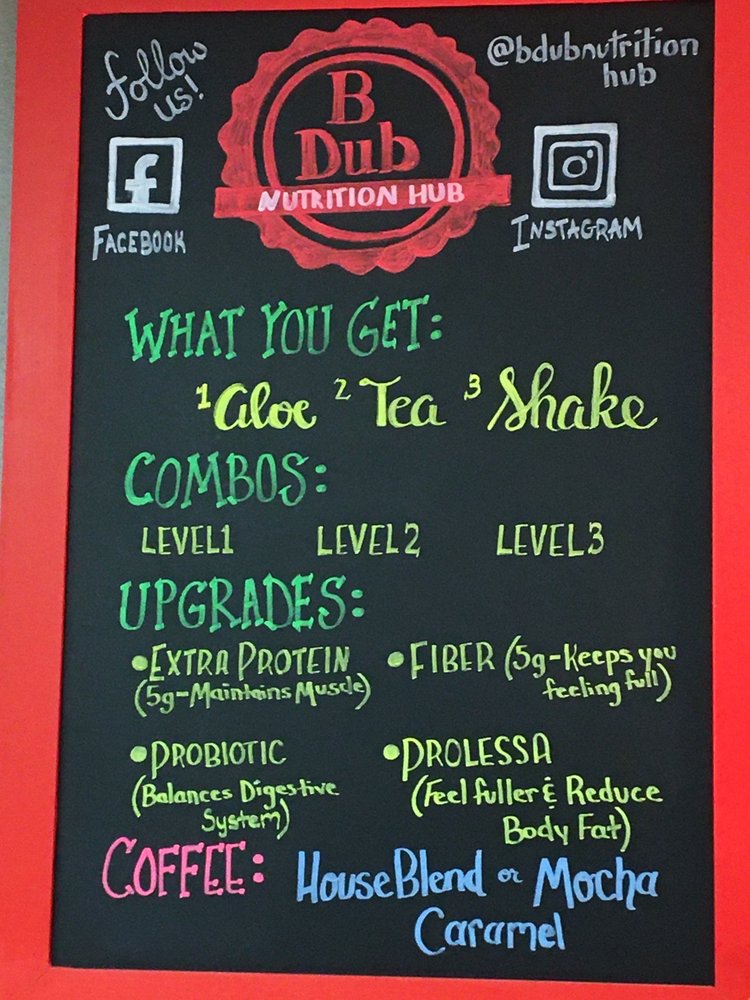 Follow us!
@bdubnutrition
hub
B
Dub
NUTRITION HUB
FACEBOOK
INSTAGRAM
WHAT YOU GET:
1 Aloe 2 Tea 3 Shake
COMBOS:
LEVEL 1 LEVEL 2 LEVEL 3
UPGRADES:
•EXTRA PROTEIN
(5g-Maintains Muscle)
•FIBER (5g-Keeps you
feeling full)
•PROBIOTIC
(Balances Digestive
System)
•PROLESSA
(Feel fuller & Reduce
Body Fat)
COFFEE: House Blend or Mocha
Caramel